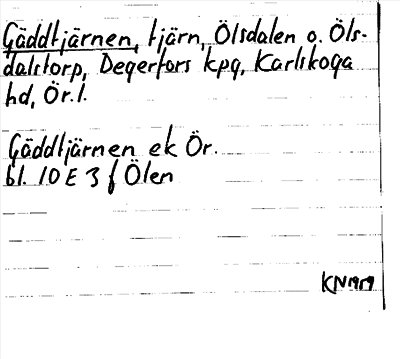 Gäddtjärnen, tjärn, Ölsdalen o. Öls-
dalstorp, Degerfors kpg, Karlskoga
hd, Ör. l.
Gäddtjärnen ek Ör.
bl. 10 E 3 f Ölen
KN 1959